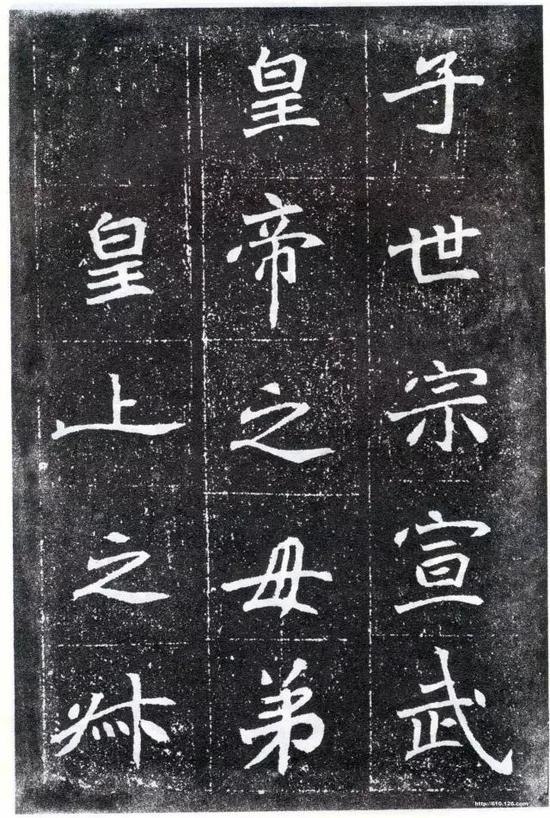 子世宗宣武
皇帝之母弟
皇上之䊹
http://610.126.com